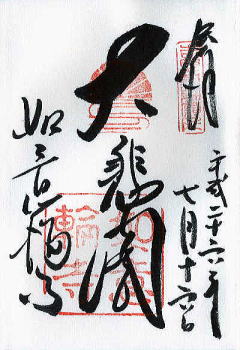 奉拝
平成二十六年
七月十六日
大悲閣
如意輪寺